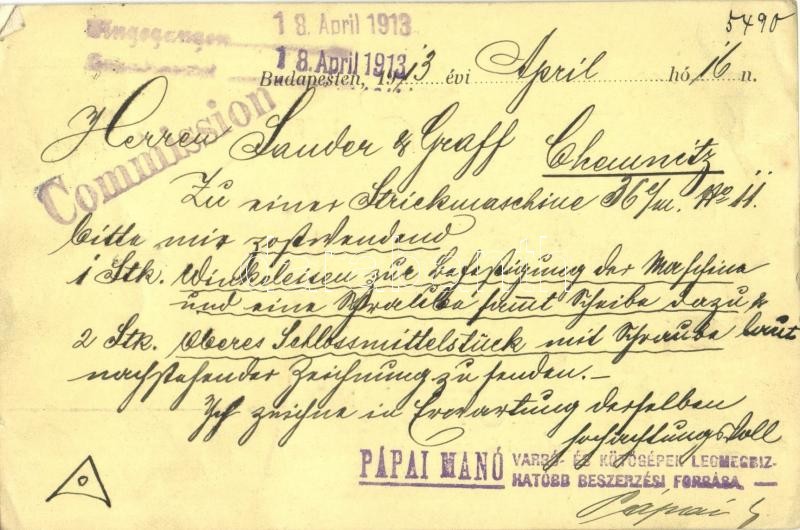 5490
Eingegangen 18. April 1913
18. April 1913
Budapesten, 1913 évi April hó 16 n.
Commission
Herren Sander & Graff Chemnitz
Zu einer Strickmaschine 36 c/m. No 11.
bitte mir postwendend
1 Stk. Winkeleisen zur Befestigung der Maschine
und eine Schraube sammt Scheibe dazu &
2 Stk. Oberes Schlossmittelstück mit Schraube laut
nachstehender Zeichnung zu senden.-
Ich zeichne in Erwartung derselben
hochachtungsvoll
PÁPAI MANÓ VARRÓ- ÉS KÖTŐGÉPEK LEGMEGBIZ-
HATÓBB BESZERZÉSI FORRÁSA. —
Pápai